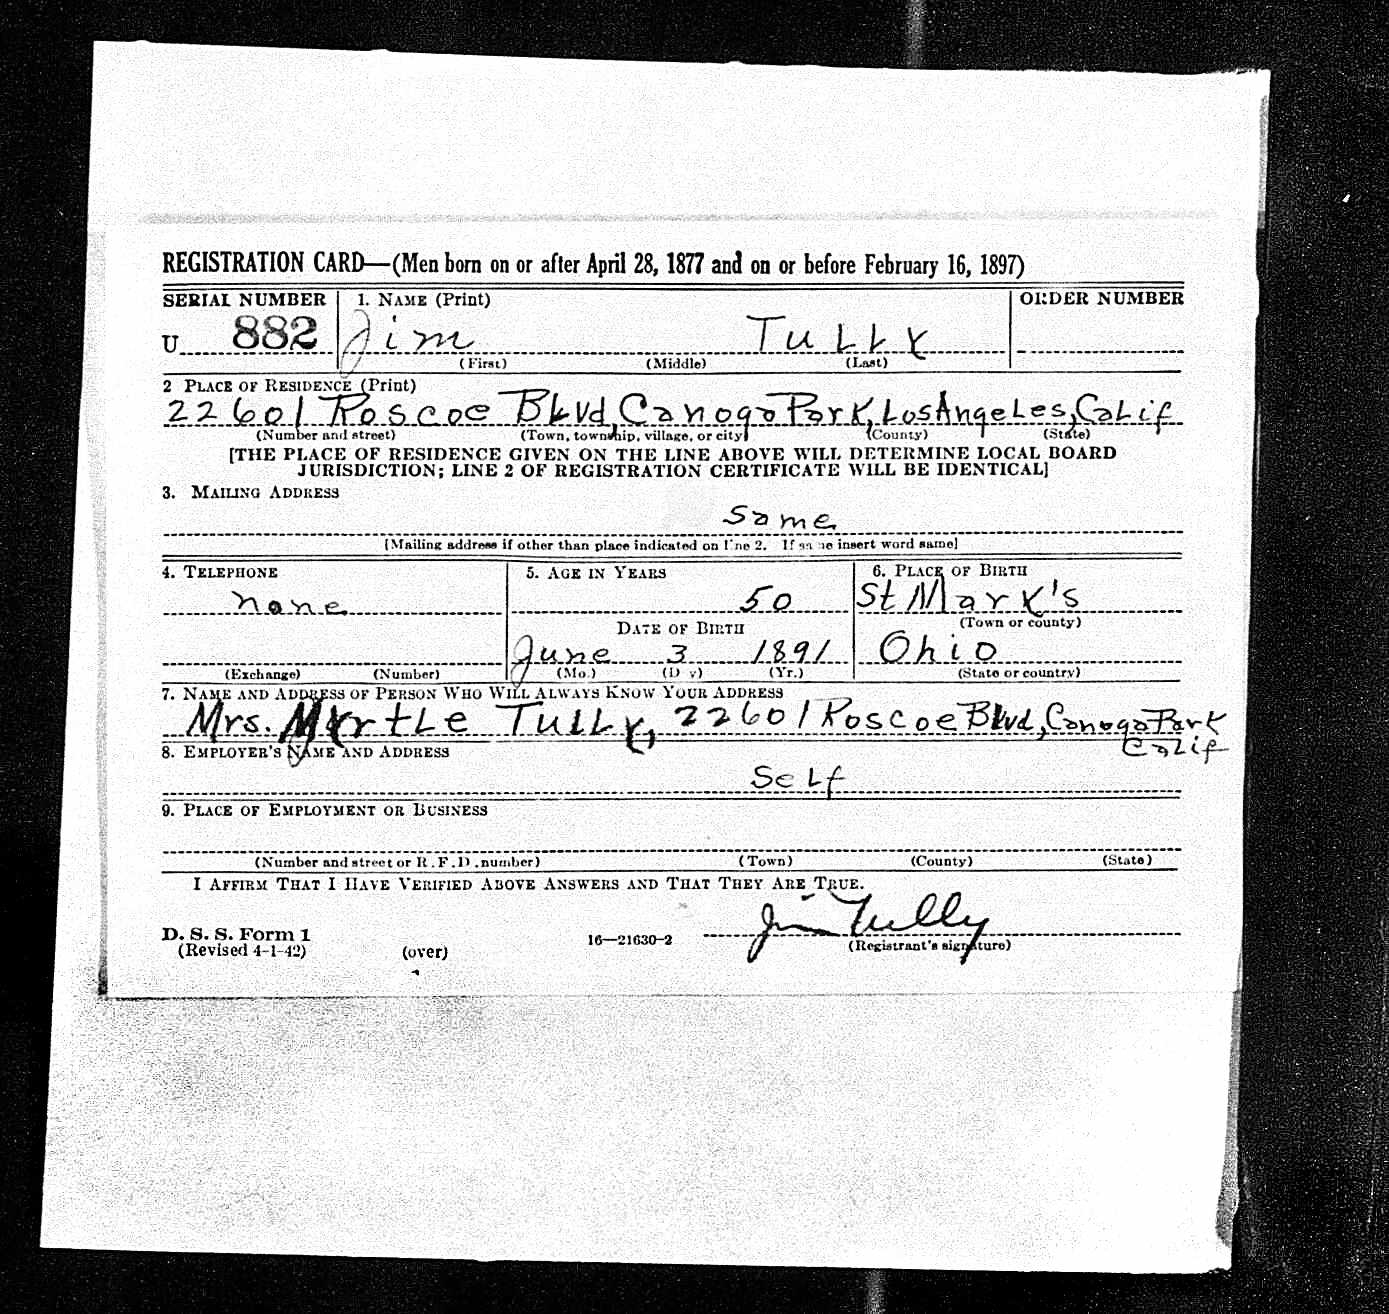 REGISTRATION CARD—(Men born on or after April 28, 1877 and on or before February 16, 1897)
SERIAL NUMBER 1. NAME (Print) ORDER NUMBER
U 882 Jim Tully
(First) (Middle) (Last)
2 PLACE OF RESIDENCE (Print)
22601 Roscoe Blvd, Canoga Park, Los Angeles, Calif
(Number and street) (Town, township, village, or city) (County) (State)
[THE PLACE OF RESIDENCE GIVEN ON THE LINE ABOVE WILL DETERMINE LOCAL BOARD
JURISDICTION; LINE 2 OF REGISTRATION CERTIFICATE WILL BE IDENTICAL]
3. MAILING ADDRESS
Same
[Mailing address if other than place indicated on line 2. If same insert word same]
4. TELEPHONE 5. AGE IN YEARS 6. PLACE OF BIRTH
none 50 St Mark's
DATE OF BIRTH (Town or county)
June 3 1891 Ohio
(Exchange) (Number) (Mo.) (D y) (Yr.) (State or country)
7. NAME AND ADDRESS OF PERSON WHO WILL ALWAYS KNOW YOUR ADDRESS
Mrs. Myrtle Tully, 22601 Roscoe Blvd, Canoga Park
Calif
8. EMPLOYER'S NAME AND ADDRESS
Self
9. PLACE OF EMPLOYMENT OR BUSINESS
(Number and street or R. F. D. number) (Town) (County) (State)
I AFFIRM THAT I HAVE VERIFIED ABOVE ANSWERS AND THAT THEY ARE TRUE.
Jim Tully
D. S. S. Form 1
(Revised 4-1-42) (over) 16—21630-2 (Registrant's signature)